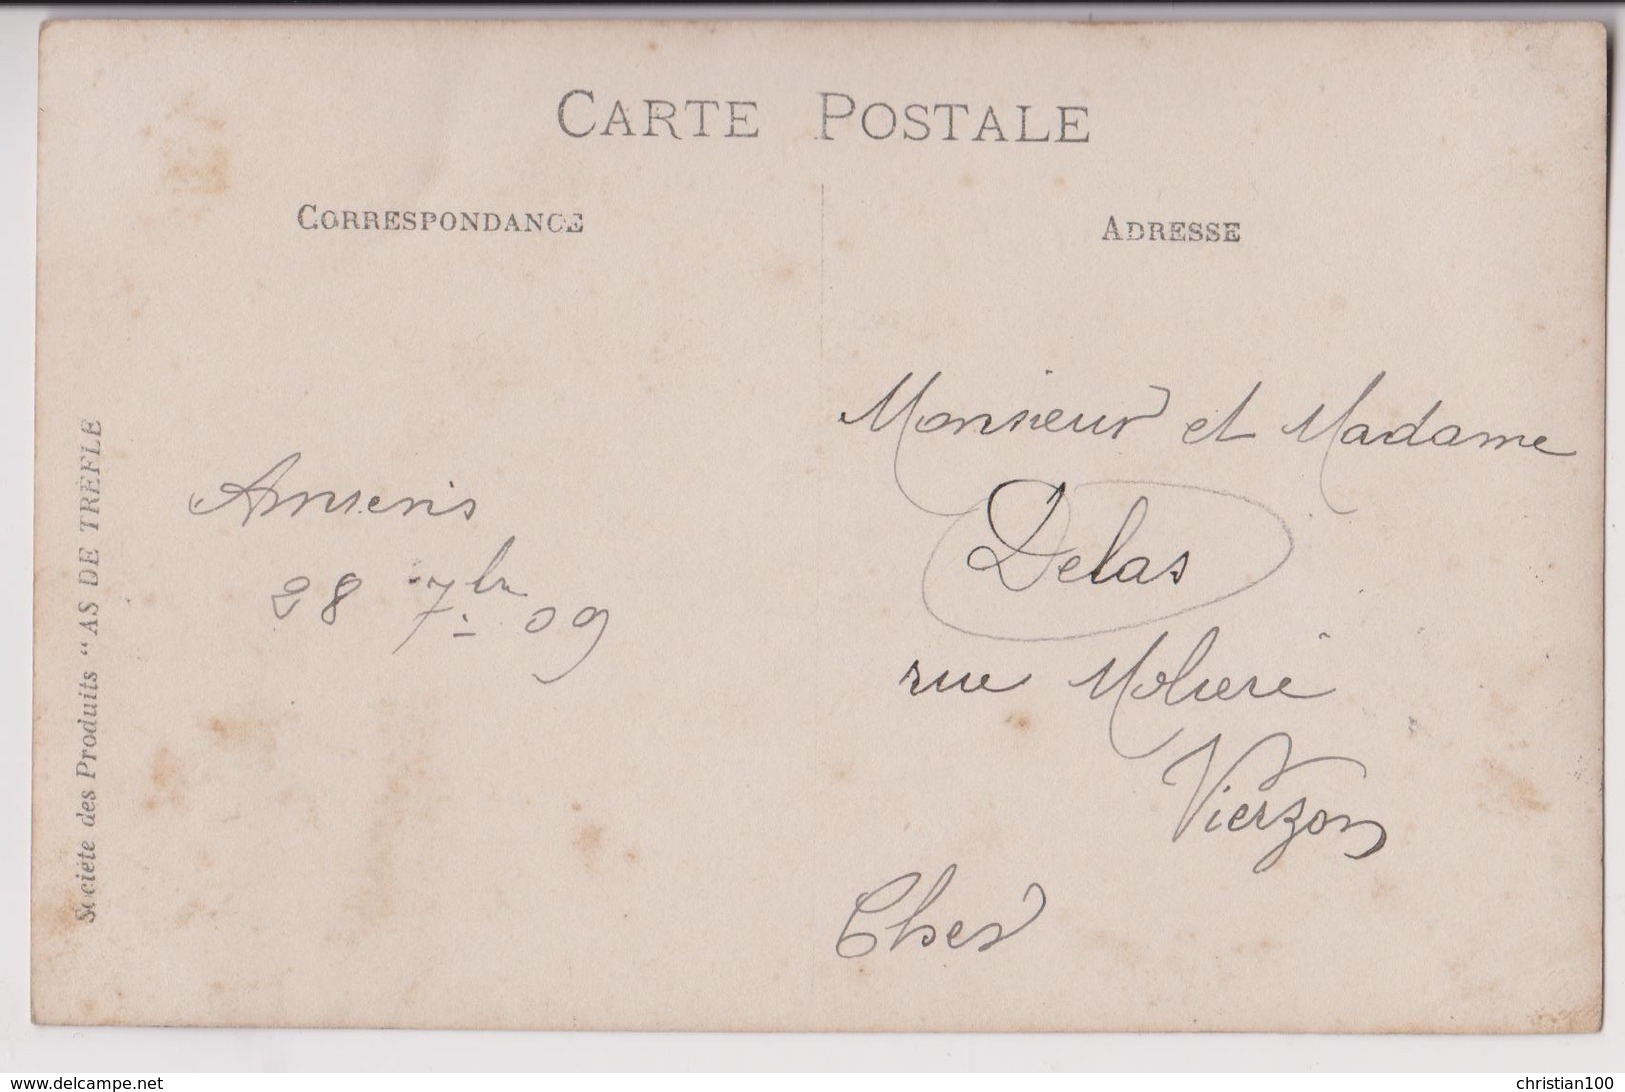 CARTE POSTALE
CORRESPONDANCE
ADRESSE
Monsieur et Madame
Delas
rue Moliere
Vierzon
Cher
Ansenis
28 7bre 09
Société des Produits "AS DE TRÈFLE
www.delcampe.net
christian100